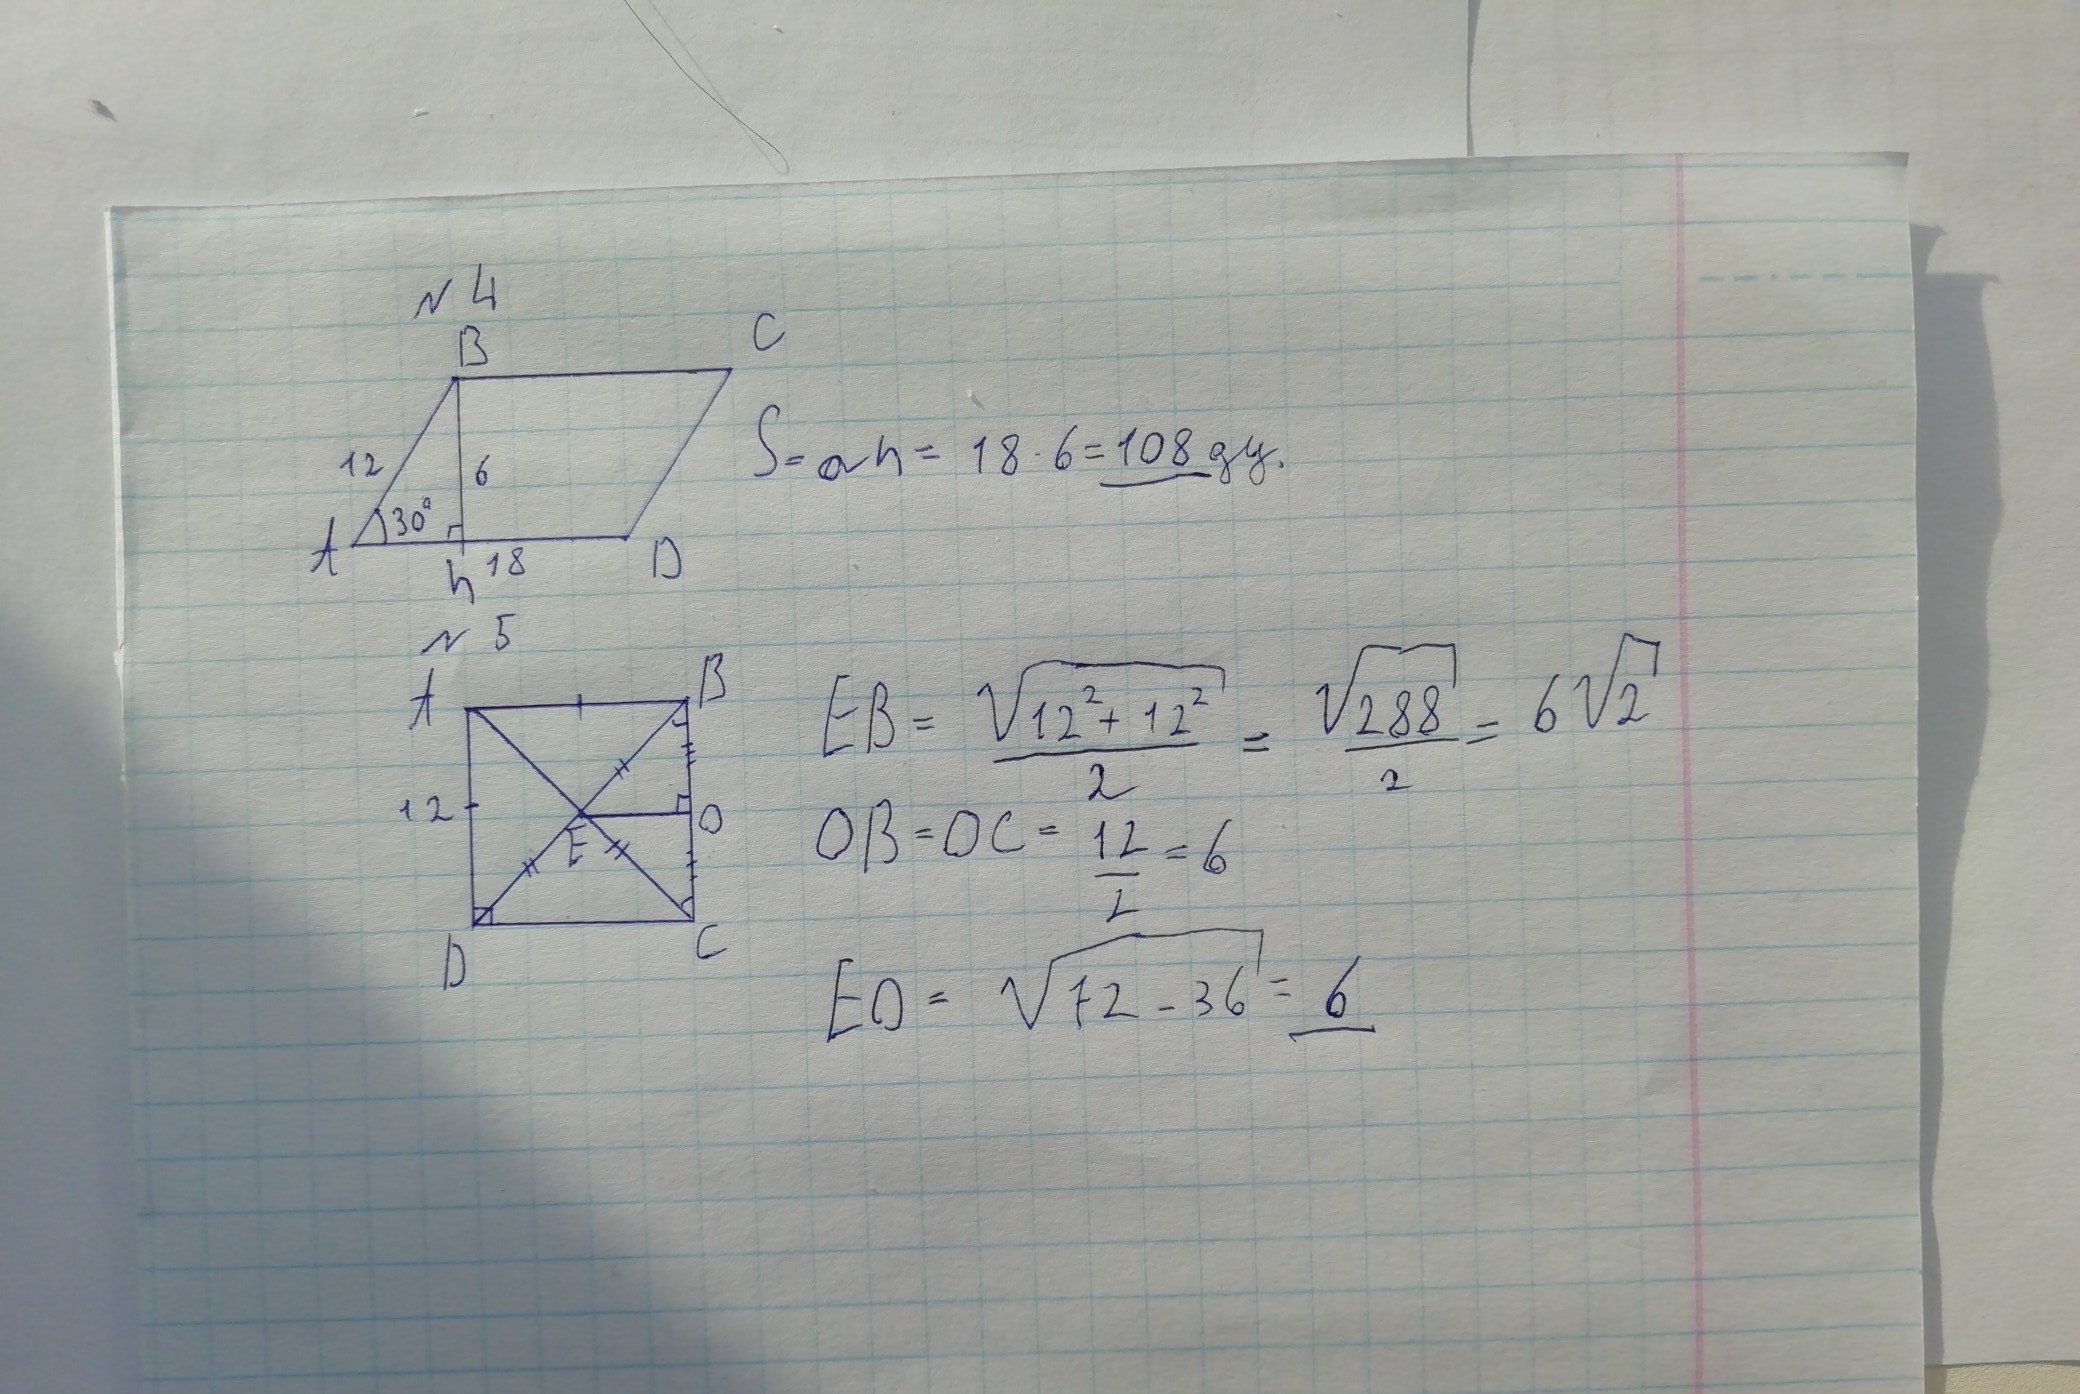 N 4
B C
12 6
A 30° h 18 D
S = ah = 18 · 6 = 108
N 5
A B
12 E O
D C
EB = √(12² + 12²)/2 = √288/2 = 6√2
OB = OC = 12/2 = 6
EO = √(72 - 36) = 6